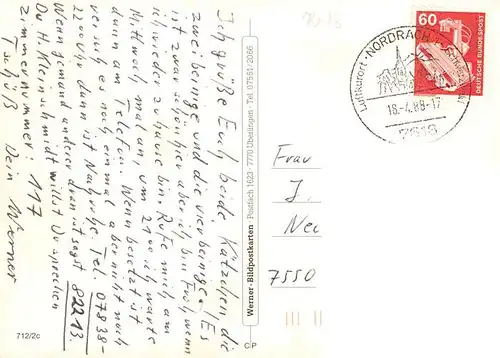 Ich grüße Euch beide Kätzchen, die
zweibeinige und die vierbeinige! Es
ist zwar schön hier aber ich bin froh wenn
ich wieder zu hause bin. Rufe mich am
Mittwoch mal an, um 21 Uhr ich warte
dann am Telefon. Wenn besetzt ist
versuch es noch einmal aber nicht nach
22 Uhr dann ist Nachtruhe. Tel. 07838-
82213.
Wenn jemand anderer dran ist sagst
Du H. Kleinschmidt willst Du sprechen
zimmernummer: 117
Tschüß Dein Werner
712/2c
Werner-Bildpostkarten · Postfach 1623 · 7770 Überlingen · Tel. 07551/2066
CP
Luftkurort · NORDRACH
18.-4.88-17
7618
60
DEUTSCHE BUNDESPOST
Frau
J.
Neu
7550